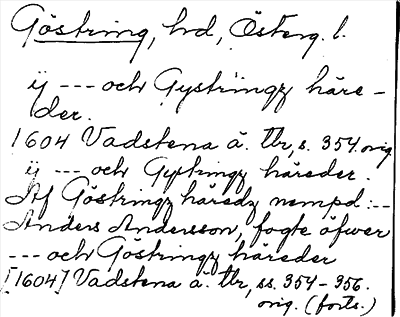 Göstring, hd, Österg. l.
ij --- och Gystringz häre-
der.
1604 Vadstena ä. tbr, s. 354. orig.
ij --- och Gystringz häreder.
Af Göstringz häredz nempd:--
Anders Andersson, fogte öfwer
--- och Göstringz häreder
[1604] Vadstena ä. tbr, ss. 354-356.
orig. (forts.)